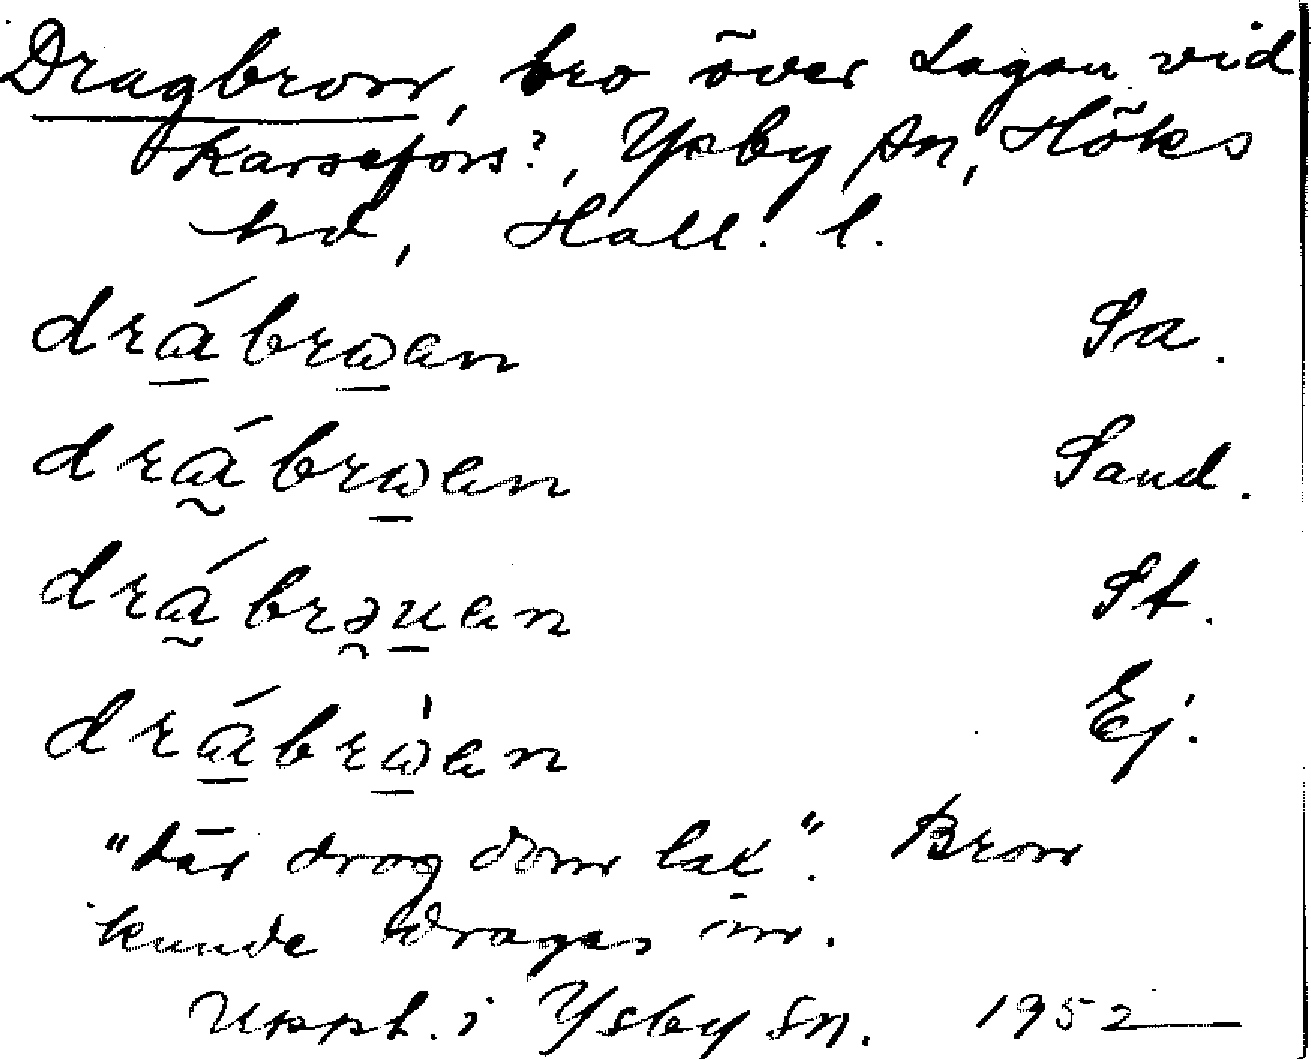 Dragbron, bro över Lagan vid
Karsefors?, Ysby sn, Höks
hd, Hall. l.
drábrωan Sa.
drábrωan Sand.
drábrəuan St.
drábrὼan Ej.
"där drog dom lax". Bron
kunde dragas in.
Upph. i Ysby sn. 1952